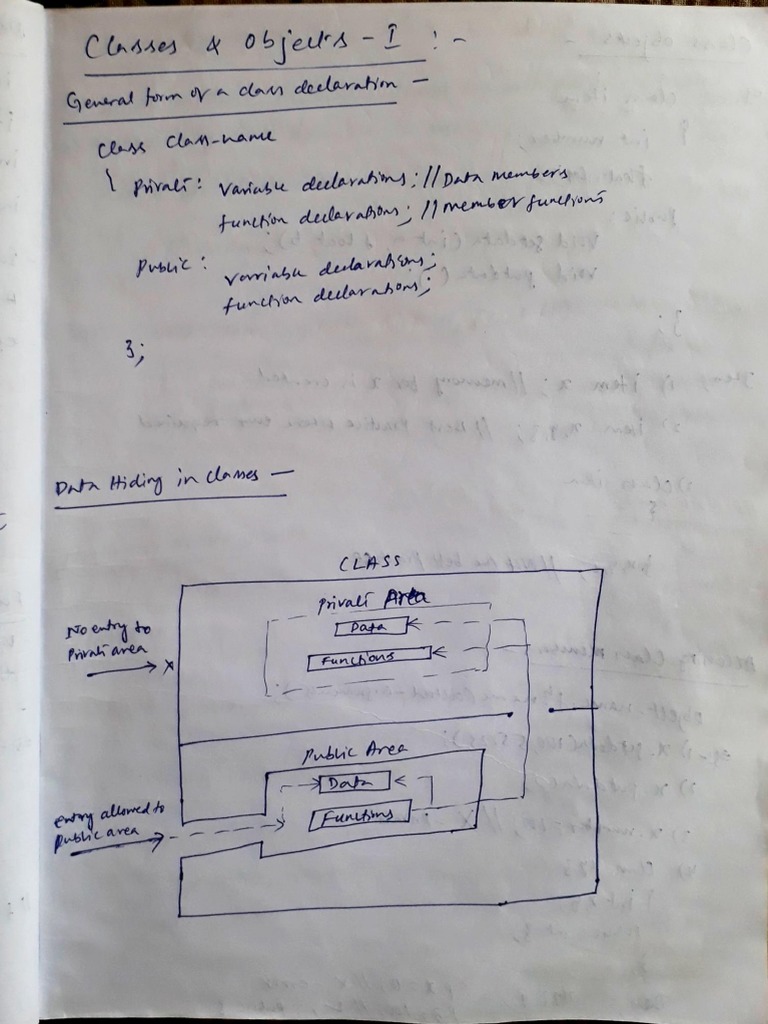 Classes & Objects - I : -
General form of a class declaration -
Class Class-name
{ Private: Variable declarations; // Data members
function declarations; // member functions
Public: variable declarations;
function declarations;
};
Data Hiding in classes -
CLASS
Private Area
Data
Functions
No entry to
Private area
x
Public Area
Data
Functions
entry allowed to
Public area